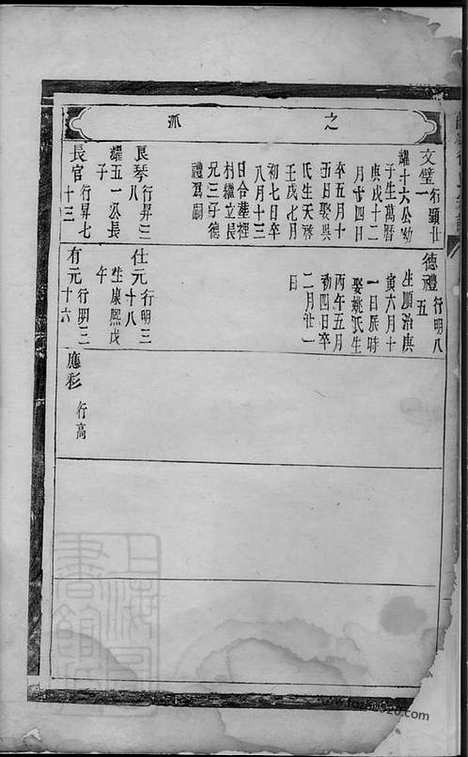 之
派
文璧 行顯廿
一
耀十六公幼
子生萬曆
庚戌十二
月廿四日
卒五月十
五日娶吳
氏生天啓
壬戌七月
初七日卒
八月十三
日合塟裡
村繼立長
兄三子德
禮爲嗣
良琴 行昇三
耀五一公長
子
長官 行昇七
十三
德禮 行明八
五
生順治庚
寅六月十
一日辰時
娶姚氏生
丙午五月
初四日卒
二月廿一
日
仕元 行明三
十八
生康熙戊
午
有元 行明三
十六
應彩 行高
上海圖
書館藏